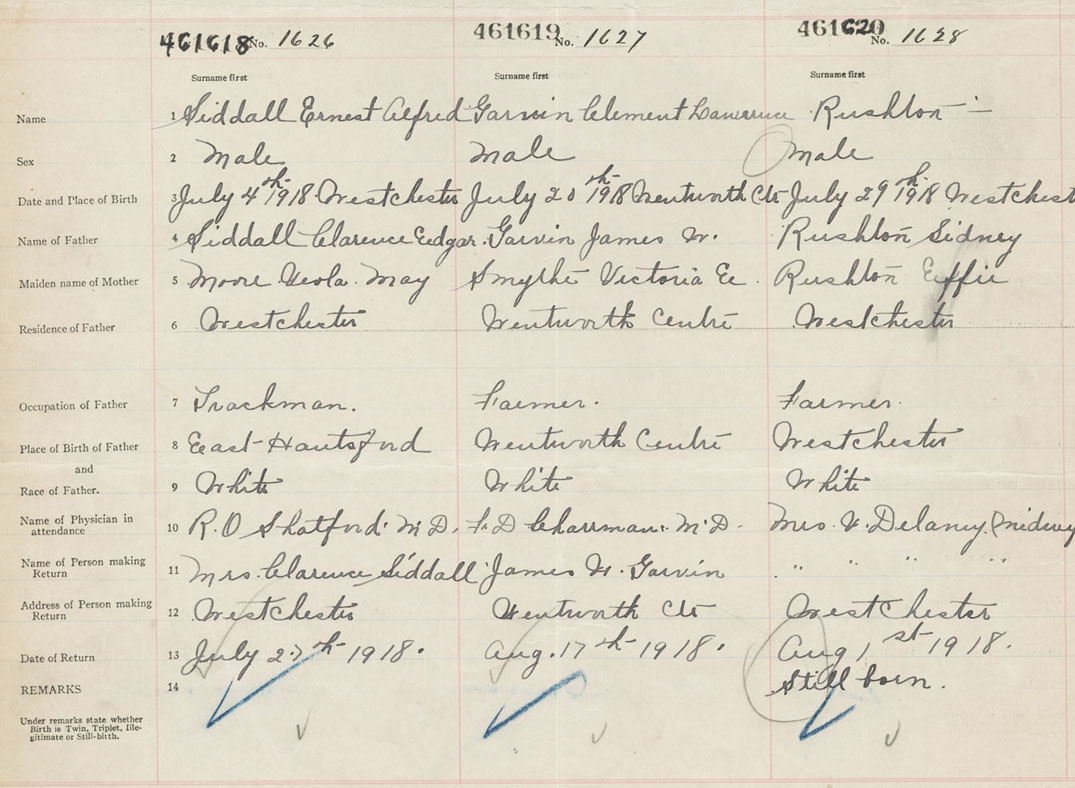 461618 No. 1626 461619 No. 1627 461620 No. 1628
Surname first Surname first Surname first
Name 1 Siddall Ernest Alfred Garvin Clement Lawrence Rushton -
Sex 2 Male Male Male
Date and Place of Birth 3 July 4th 1918 Westchester July 20th 1918 Wentworth Ctr July 29th 1918 Westchest
Name of Father 4 Siddall Clarence Edgar. Garvin James W. Rushton Sidney
Maiden name of Mother 5 Moore Veola May Smythe Victoria E. Rushton Effie
Residence of Father 6 Westchester Wentworth Centre Westchester
Occupation of Father 7 Trackman. Farmer. Farmer.
Place of Birth of Father 8 East Hantsford Wentworth Centre Westchester
and
Race of Father. 9 White White White
Name of Physician in attendance 10 R. O Shatford. M.D. F. D Charman. M.D. Mrs. V. Delaney (midwy
Name of Person making Return 11 Mrs. Clarence Siddall James W. Garvin " " "
Address of Person making Return 12 Westchester Wentworth Ctr Westchester
Date of Return 13 July 27th 1918. Aug. 17th 1918. Aug 1st 1918.
REMARKS 14 Still born.
Under remarks state whether
Birth is Twin, Triplet, Ille-
gitimate or Still-birth.